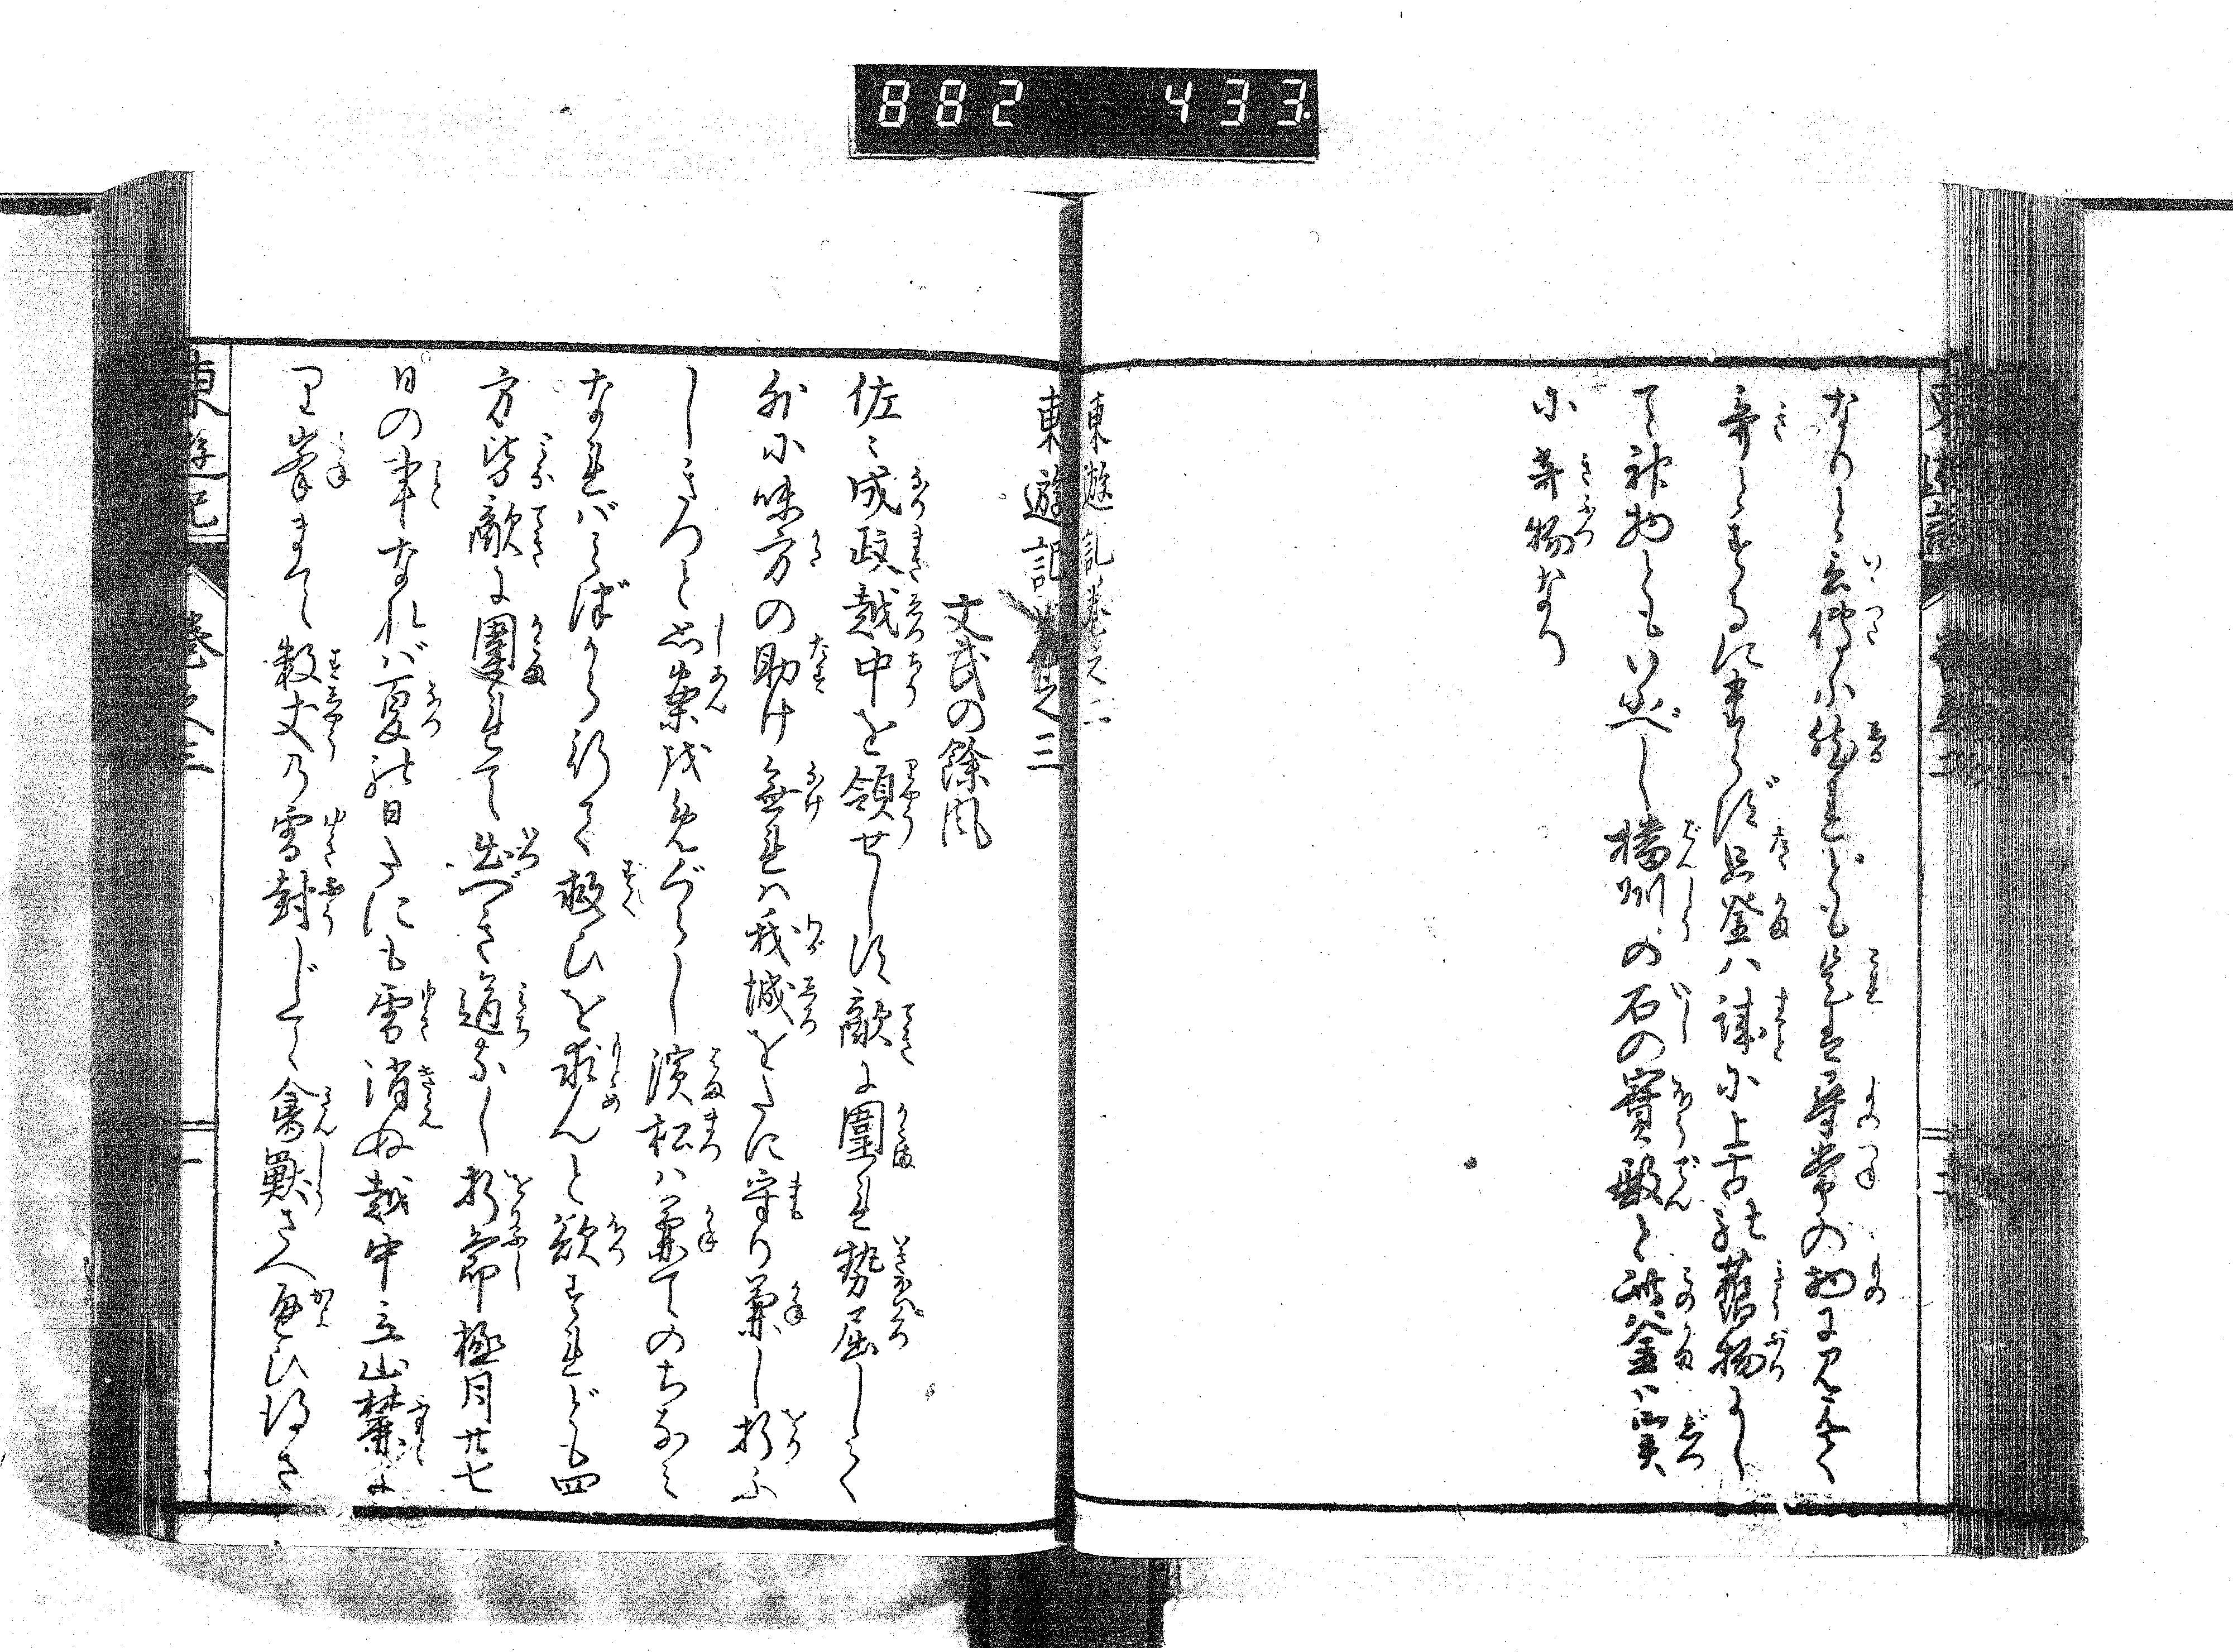 882 433
なりと云傳ふ然れども是は尋常の物に見えて
奇とするに足らず只釜ハ誠に上古の舊物にし
て神物ともいふべし播州の石の寶殿と此釜ハ実
に奇物なり
東遊記巻之二
東遊記巻之三
文武の餘風
佐々成政越中を領せし時敵に圍まれ勢屈して
外に味方の助け無れハ我城をだに守り兼し折ふ
しきつと思案をめぐらし濱松ハ兼てのちなみ
なれバしばから行て救ひを求んと欲すれども四
方皆敵に圍まれて出べき道なし折節極月廿七
日の事なれバ夏の日だにも雪消ぬ越中立山麓よ
り峯まて数丈乃雪封じて禽獣さへ通ひ得さ
東遊記 巻之三